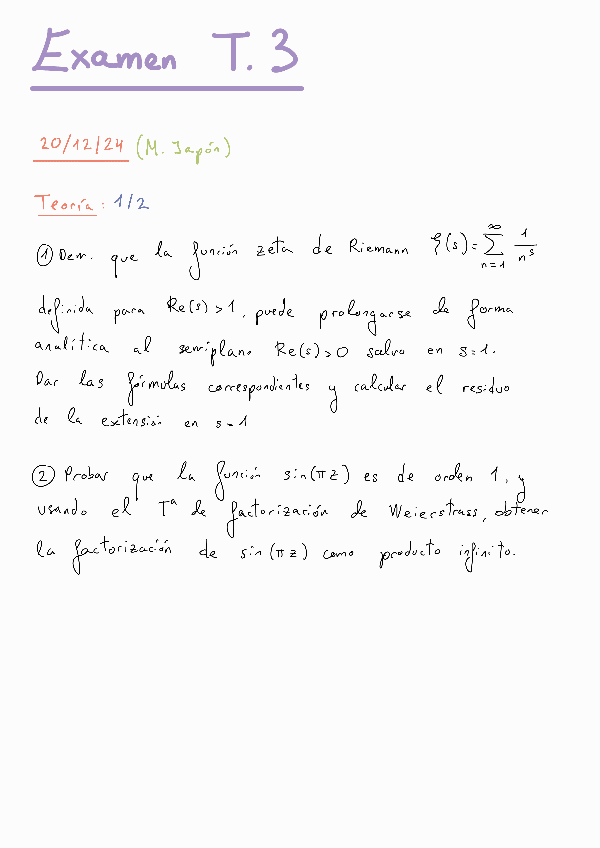 Examen T. 3
20/12/24 (M. Japón)
Teoría: 1/2
① Dem. que la función zeta de Riemann ζ(s) = ∑_{n=1}^{∞} 1/n^s
definida para Re(s) > 1, puede prolongarse de forma
analítica al semiplano Re(s) > 0 salvo en s = 1.
Dar las fórmulas correspondientes y calcular el residuo
de la extensión en s = 1
② Probar que la función sin(πz) es de orden 1, y
usando el Tª de factorización de Weierstrass, obtener
la factorización de sin(πz) como producto infinito.